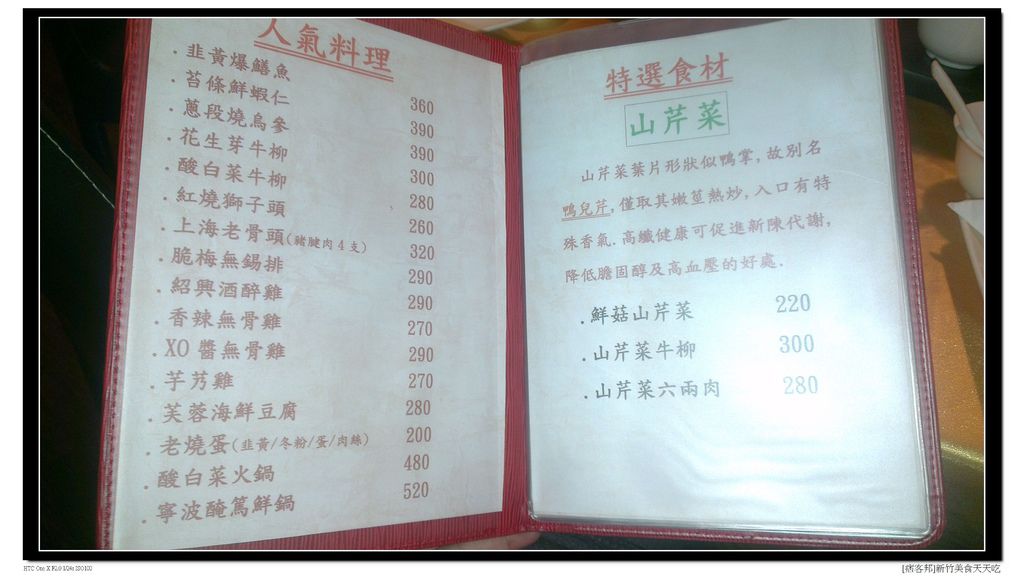 人氣料理
.韭黃爆鱔魚 360
.苔條鮮蝦仁 390
.蔥段燒烏參 390
.花生芽牛柳 300
.酸白菜牛柳 280
.紅燒獅子頭 260
.上海老骨頭(豬腱肉4支) 320
.脆梅無錫排 290
.紹興酒醉雞 290
.香辣無骨雞 270
.XO 醬無骨雞 290
.芋艿雞 270
.芙蓉海鮮豆腐 280
.老燒蛋(韭黃/冬粉/蛋/肉絲) 200
.酸白菜火鍋 480
.寧波醃篤鮮鍋 520
特選食材
山芹菜
山芹菜葉片形狀似鴨掌,故別名
鴨兒芹,僅取其嫩莖熱炒,入口有特
殊香氣.高纖健康可促進新陳代謝,
降低膽固醇及高血壓的好處.
.鮮菇山芹菜 220
.山芹菜牛柳 300
.山芹菜六兩肉 280
[痞客邦]新竹美食天天吃